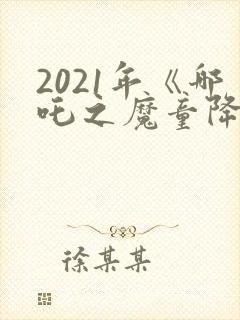 2021年《哪
吒之魔童降
徐某某